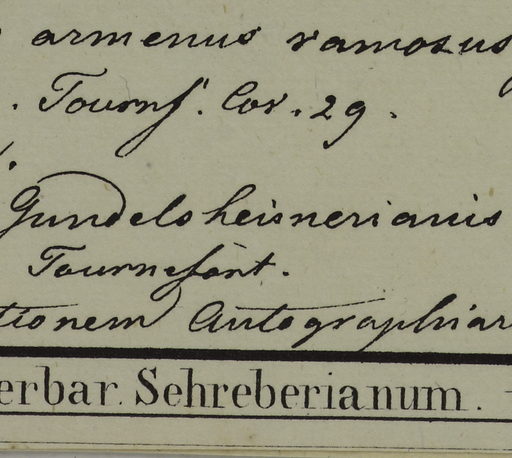 armenus ramosus
. Tournf. Cor. 29.
Gundelsheisnerianis
Tournefort.
tionem Autographiar
erbar. Sehreberianum.